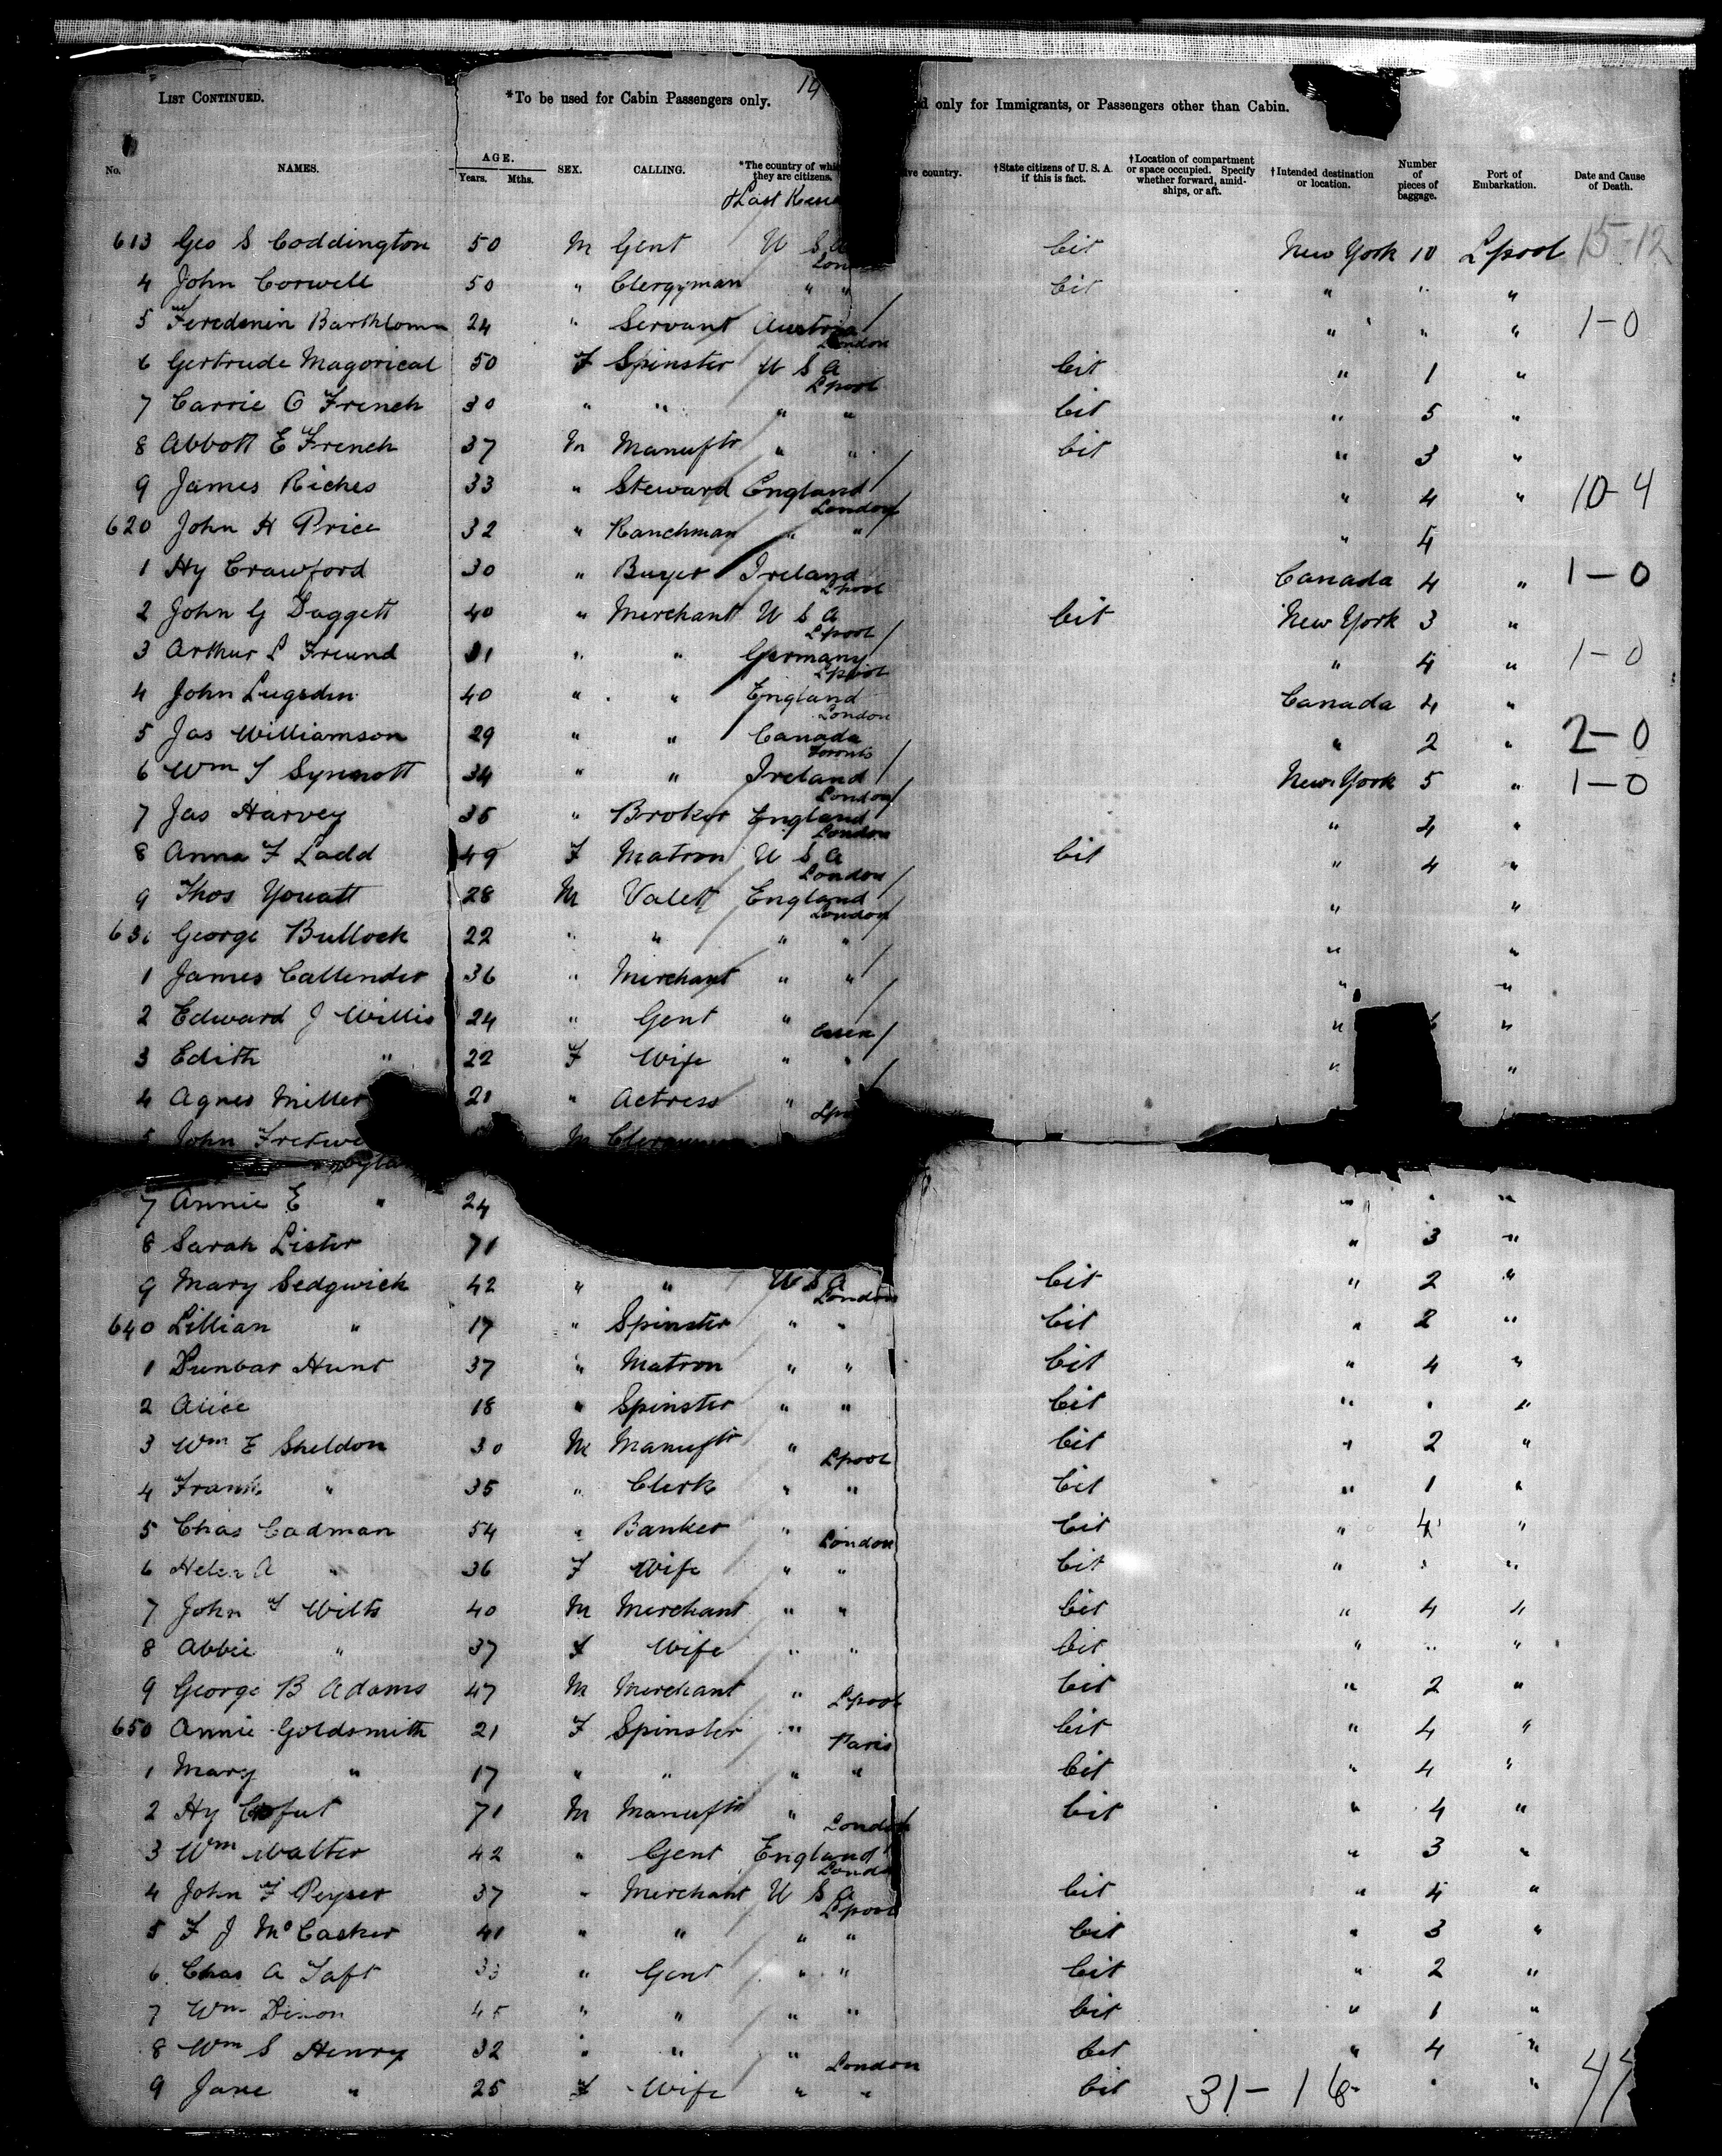 14
LIST CONTINUED. *To be used for Cabin Passengers only. only for Immigrants, or Passengers other than Cabin.
No. NAMES. AGE. Years. Mths. SEX. CALLING. *The country of whi they are citizens. ive country. †State citizens of U. S. A. if this is fact. †Location of compartment or space occupied. Specify whether forward, amid-ships, or aft. †Intended destination or location. Number of pieces of baggage. Port of Embarkation. Date and Cause of Death.
613 Geo S Coddington 50 M Gent U S A Lon Cit New York 10 Lpool 15-12
4 John Corwell 50 " Clergyman " " Cit " " "
5 24 " Servant Austria London " " " 1-0
6 Gertrude Magorical 50 F Spinster U S A Lpool Cit " 1 "
7 Carrie O French 30 " " " " Cit " 5 "
8 Abbott E French 37 M Manuftr " " Cit " 3 "
9 James Riches 33 " Steward England London " 4 " 10-4
620 John H Price 32 " Ranchman " " " 4
1 Hy Crawford 30 " Buyer Ireland Lpool Canada 4 " 1-0
2 John G Daggett 40 " Merchant U S A Lpool Cit New York 3 "
3 Arthur L Freund 31 " " Germany Lpool " 4 " 1-0
4 John Lugsdin 40 " " England London Canada 4 "
5 Jas Williamson 29 " " Canada Toronto " 2 " 2-0
6 Wm T Synnott 34 " " Ireland London New York 5 " 1-0
7 Jas Harvey 35 " Broker England London " 4 "
8 Anna F Ladd 49 F Matron U S A London Cit " 4 "
9 Thos Youatt 28 M Valet England London " "
630 George Bullock 22 " " " " " "
1 James Callender 36 " Merchant " " " "
2 Edward J Willis 24 " Gent " " "
3 Edith " 22 F Wife " " " "
4 Agnes Miller 21 " Actress " Lpo
5 John M
7 Annie E " 24 " " "
8 Sarah Lister 71 " 3 "
9 Mary Sedgwick 42 " " U S A London Cit " 2 "
640 Lillian " 17 " Spinster " " Cit " 2 "
1 Dunbar Hunt 37 " Matron " " Cit " 4 "
2 Alice 18 " Spinster " " Cit " " "
3 Wm E Sheldon 30 M Manuftr " Lpool Cit " 2 "
4 Frank " 35 " Clerk " " Cit " 1 "
5 Chas Cadman 54 " Banker " London Cit " 4 "
6 Helen A " 36 F Wife " " Cit " " "
7 John T Wilts 40 M Merchant " " Cit " 4 "
8 Abbie " 37 F Wife " " Cit " " "
9 George B Adams 47 M Merchant " Lpool Cit " 2 "
650 Annie Goldsmith 21 F Spinster " Paris Cit " 4 "
1 Mary " 17 " " " " Cit " 4 "
2 Hy 71 M Manuftr " London Cit " 4 "
3 Wm Walter 42 " Gent England London " 3 "
4 John F Peyser 37 " Merchant U S A Lpool Cit " 4 "
5 F J McCasker 41 " " " " Cit " 3 "
6 Chas A Taft 33 " Gent " " Cit " 2 "
7 Wm Dixon 45 " " " " Cit " 1 "
8 Wm S Henry 32 " " " London Cit " 4 "
9 Jane " 25 F Wife " " Cit 31-16 " " "